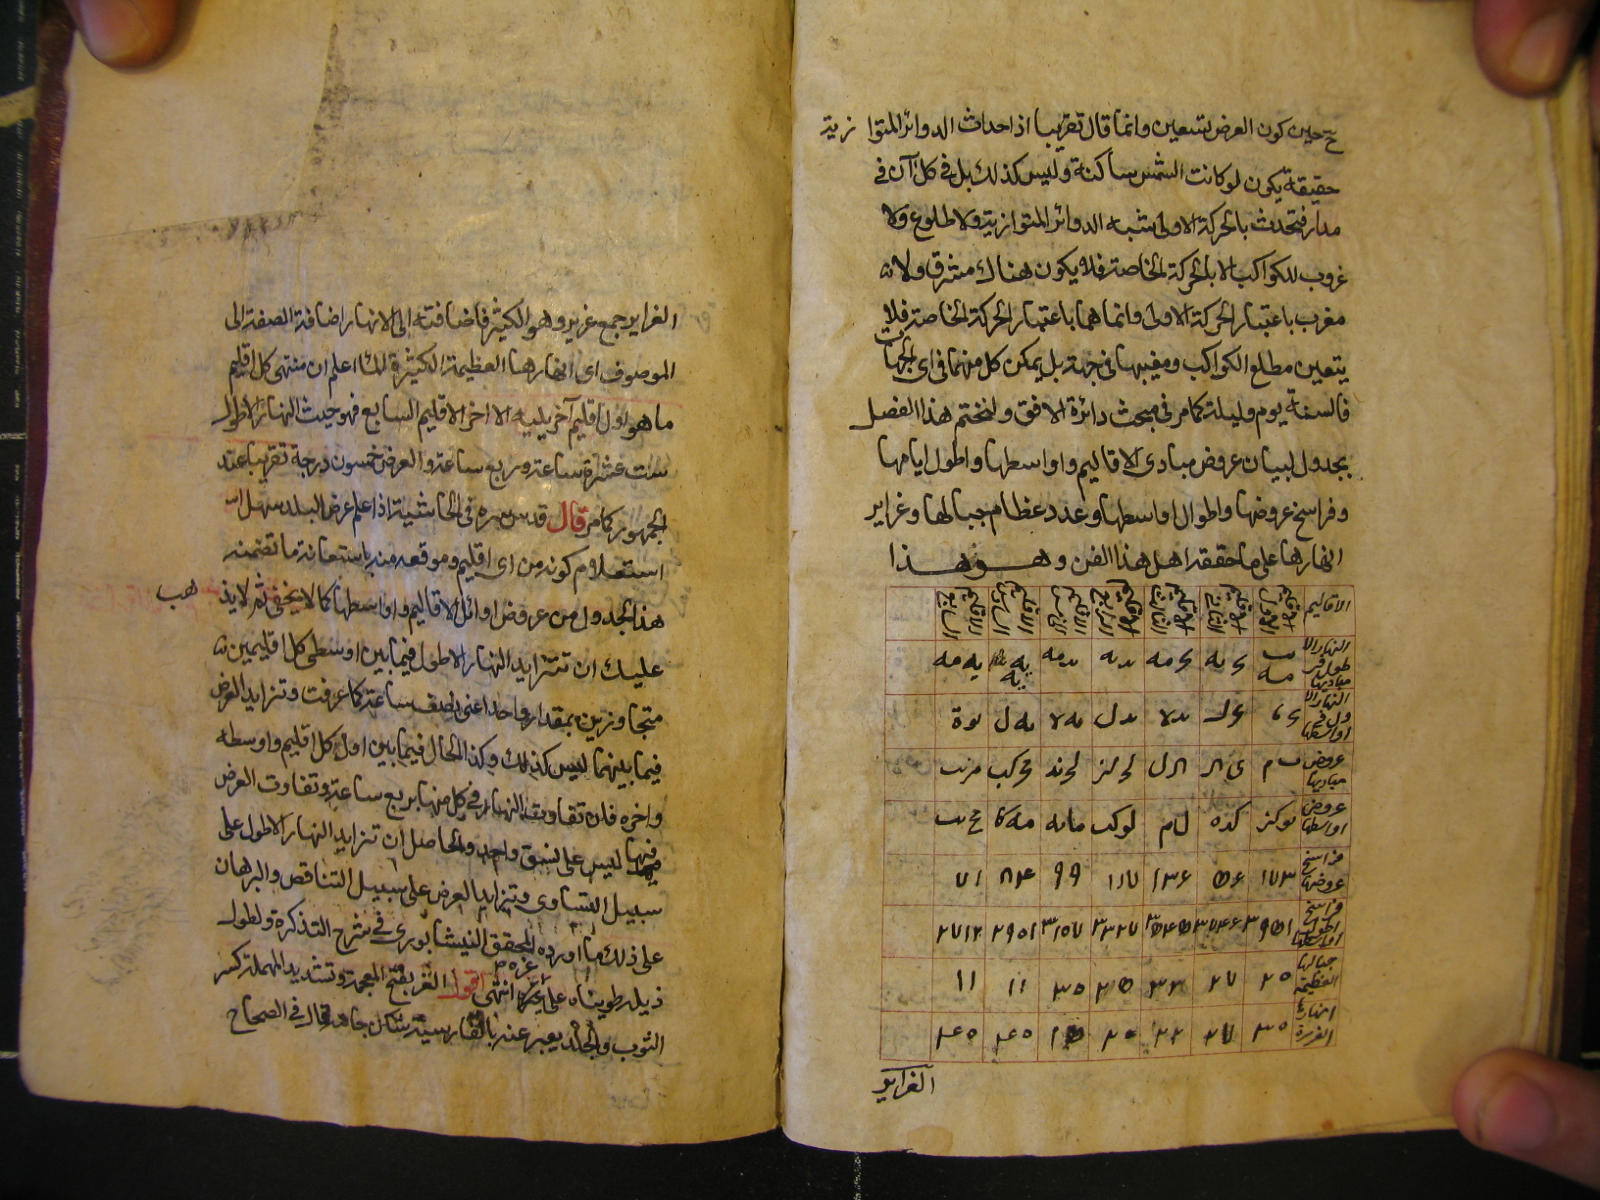 ح حين كون العرض تسعين وانما قال تقريبا اذ احداث الدوائر المتوا زية
حقيقة يكون لو كانت الشمس ساكنة وليس كذلك بل في كل آن في
مدار فتحدث بالحركة الاولى شبه الدوائر المتوازية ولا طلوع ولا
غروب للكواكب الا بالحركة الخاصة فلا يكون هناك مشرق ولا
مغرب باعتبار الحركة الاولى وانما هما باعتبار الحركة الخاصة فلا
يتعين مطلع الكواكب ومغيبها في جهة بل يمكن كل منهما في اى الجهات
فالسنة يوم وليلة كما مر في مبحث دائرة الافق ولنختم هذا الفصل
بجدول لبيان عروض مبادى الاقاليم واواسطها واطول ايامها
وفراسخ عروضها واطوال اواسطها وعدد عظام جبالها وغراير
انهارها على ما حققه اهل هذا الفن وهو هذا
الاقاليم الاقليم الاول الاقليم الثانى الاقليم الثالث الاقليم الرابع الاقليم الخامس الاقليم السادس الاقليم السابع
النهار الا طول في مباديها
النهار الا طول في اواسطها
عروض مباديها
عروض اواسطها
فراسخ عروضها ١٧٣ ١٣۶ ١١٧ ٩٩ ٨۴ ٧١
فراسخ اطوال اواسطها ٣١٥٧ ٢٩٥١ ٢٧١٢
جبالها العظيمة ٢٥ ٢٧ ٢٢ ٢٥ ٣٥ ١١ ١١
انهارها الغزيرة ٣٥ ٢٧ ٢٢ ٢٥ ١٥ ۴٥ ۴٥
الغراير
الغراير جمع غرير وهو الكثير فاضافته الى الانهار اضافة الصفة الى
الموصوف اى انهارها العظيمة الكثيرة الماء اعلم ان منتهى كل اقليم
ما هو اول اقليم آخر يليه الا اخر الاقليم السابع فهو حيث النهار الاطول
ست عشرة ساعة وربع ساعة والعرض خمسون درجة تقريبا عند
الجمهور كما مر قال قدس سره في الحاشية اذا علم عرض البلد سهل
استعلام كونه من اى اقليم وموقعه منه باستعانة ما تضمنه
هذا الجدول من عروض اوائل الاقاليم واواسطها كما لا يخفى ثم لا يذ هب
عليك ان تتزايد النهار الاطول فيما بين اوسطى كل اقليمين
متجاوزين بمقدار واحد اعنى نصف ساعة كما عرفت وتزايد العرض
فيما بينهما ليس كذلك وكذا الحال فيما بين اول كل اقليم واوسطه
واخره فان تفاوت النهار في كل منها بربع ساعة وتفاوت العرض
فيها ليس على نسق واحد والحاصل ان تزايد النهار الاطول على
سبيل التساوى وتزايد العرض على سبيل التناقص والبرهان
على ذلك ما اورده المحقق النيشابورى في شرح التذكرة ولطول
ذيله طويناه على غره انتهى اقول الغر بفتح المعجمة وتشديد المهملة كسر
الثوب والجلد يعبر عنه بالفارسية شكن جامه قال في الصحاح